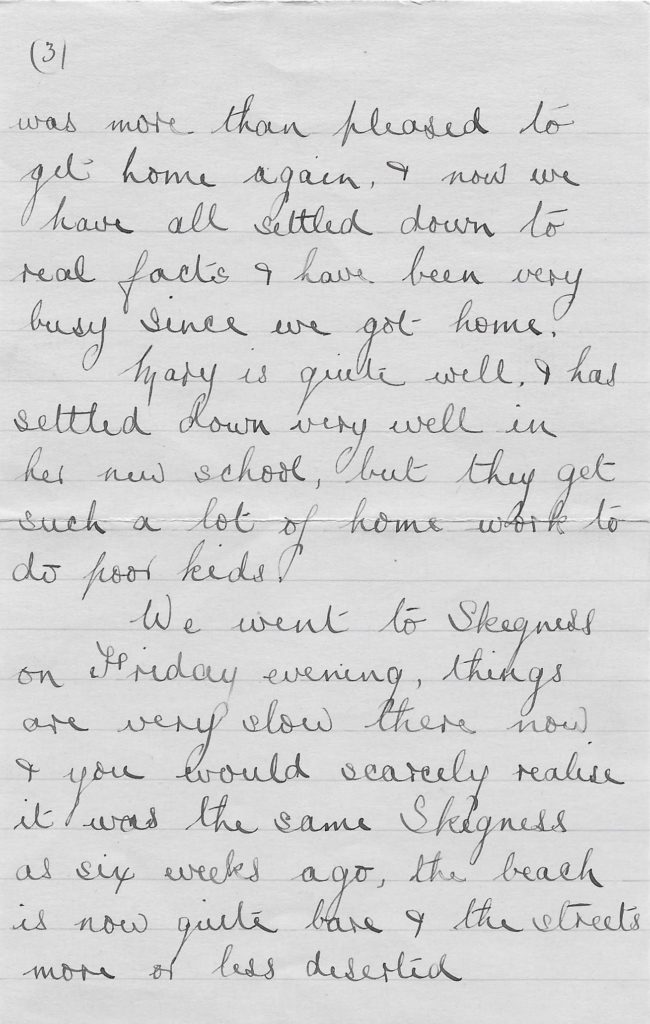 (3)
was more than pleased to
get home again, & now we
have all settled down to
real facts & have been very
busy since we got home.
Mary is quite well, & has
settled down very well in
her new school, but they get
such a lot of home work to
do poor kids.
We went to Skegness
on Friday evening, things
are very slow there now
& you would scarcely realise
it was the same Skegness
as six weeks ago, the beach
is now quite bare & the streets
more or less deserted